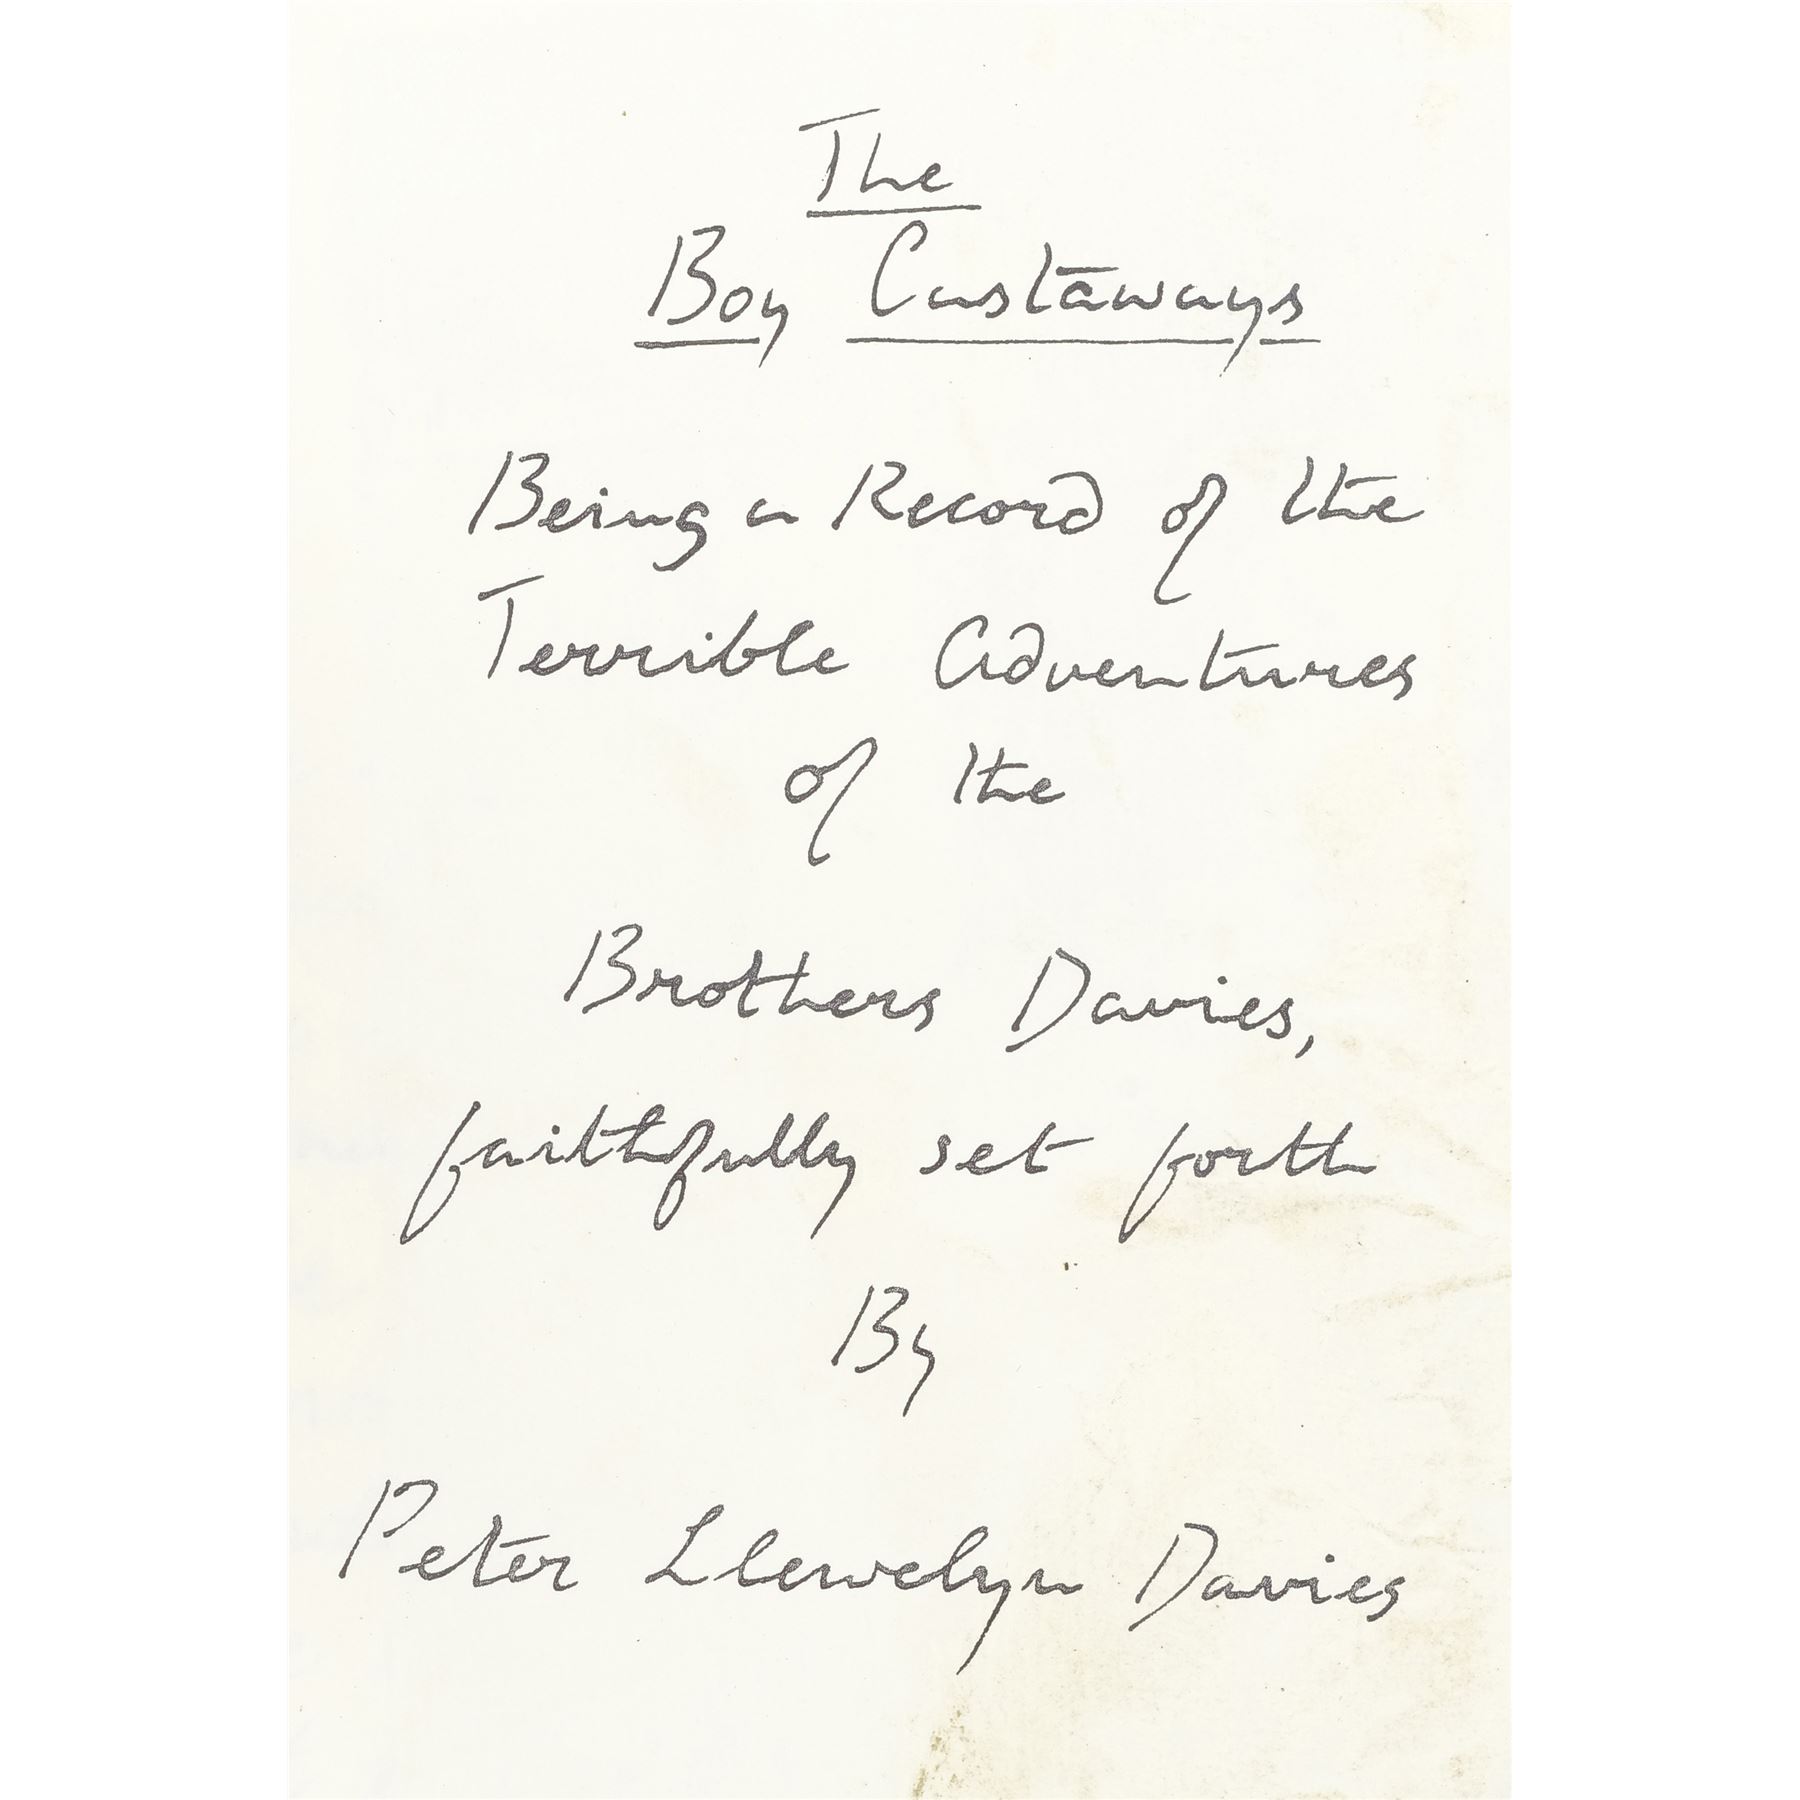 The
Boy Castaways
Being a Record of the
Terrible Adventures
of the
Brothers Davies,
faithfully set forth
By
Peter Llewelyn Davies